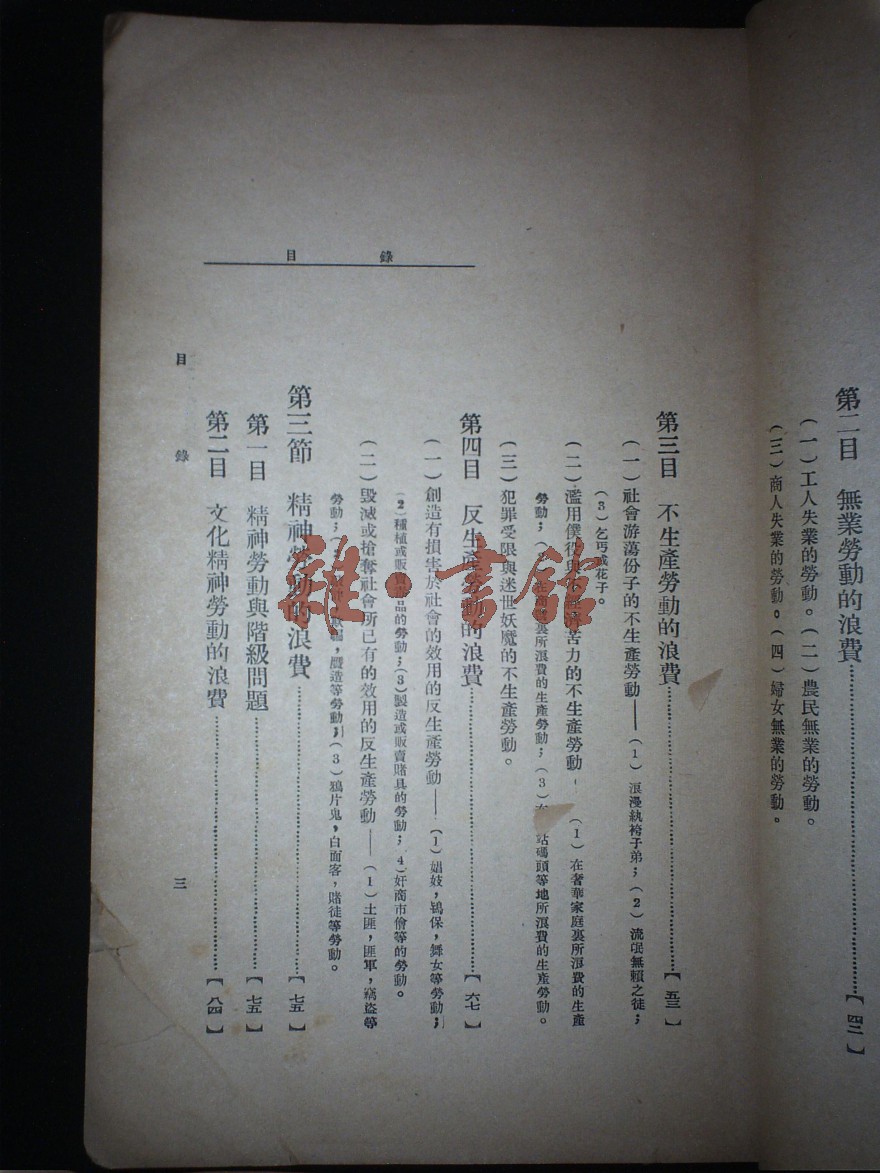 第二目 無業勞動的浪費……【四三】
(一)工人失業的勞動。(二)農民無業的勞動。
(三)商人失業的勞動。(四)婦女無業的勞動。
第三目 不生產勞動的浪費……【五三】
(一)社會游蕩份子的不生產勞動——(1)浪漫紈袴子弟;(2)流氓無賴之徒;
(3)乞丐或花子。
(二)濫用僕役與不經濟苦力的不生產勞動——(1)在奢華家庭裏所浪費的生產
勞動;(2)裏所浪費的生產勞動;(3)站碼頭等地所浪費的生產勞動。
(三)犯罪受限與迷世妖魔的不生產勞動。
第四目 反生產勞動的浪費……【六七】
(一)創造有損害於社會的效用的反生產勞動——(1)娼妓,鴇保,舞女等勞動;
(2)種植或販賣品的勞動;(3)製造或販賣賭具的勞動;4)奸商市儈等的勞動。
(二)毀滅或搶奪社會所已有的效用的反生產勞動——(1)土匪,匪軍,竊盜等
勞動;(2),贋造等勞動;(3)鴉片鬼,白面客,賭徒等勞動。
第三節 精神勞動的浪費……【七五】
第一目 精神勞動與階級問題……【七五】
第二目 文化精神勞動的浪費……【八四】
目 錄
三
目 錄
雜·書館